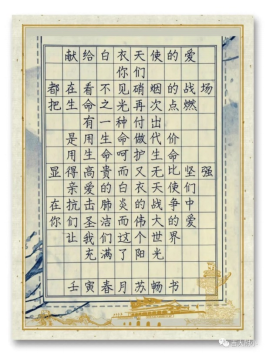 献给白衣天使的爱
你们
都在看不见硝烟的战场
把生命之光再次点燃
有一种付出
是用生命做代价
用生命呵护生命
显得高贵而又无比坚强
亲爱的白衣天使们
在抗击肺炎的战争中
你们圣洁而伟大的爱
让我们这个世界
充满了阳光
壬寅春月苏畅书